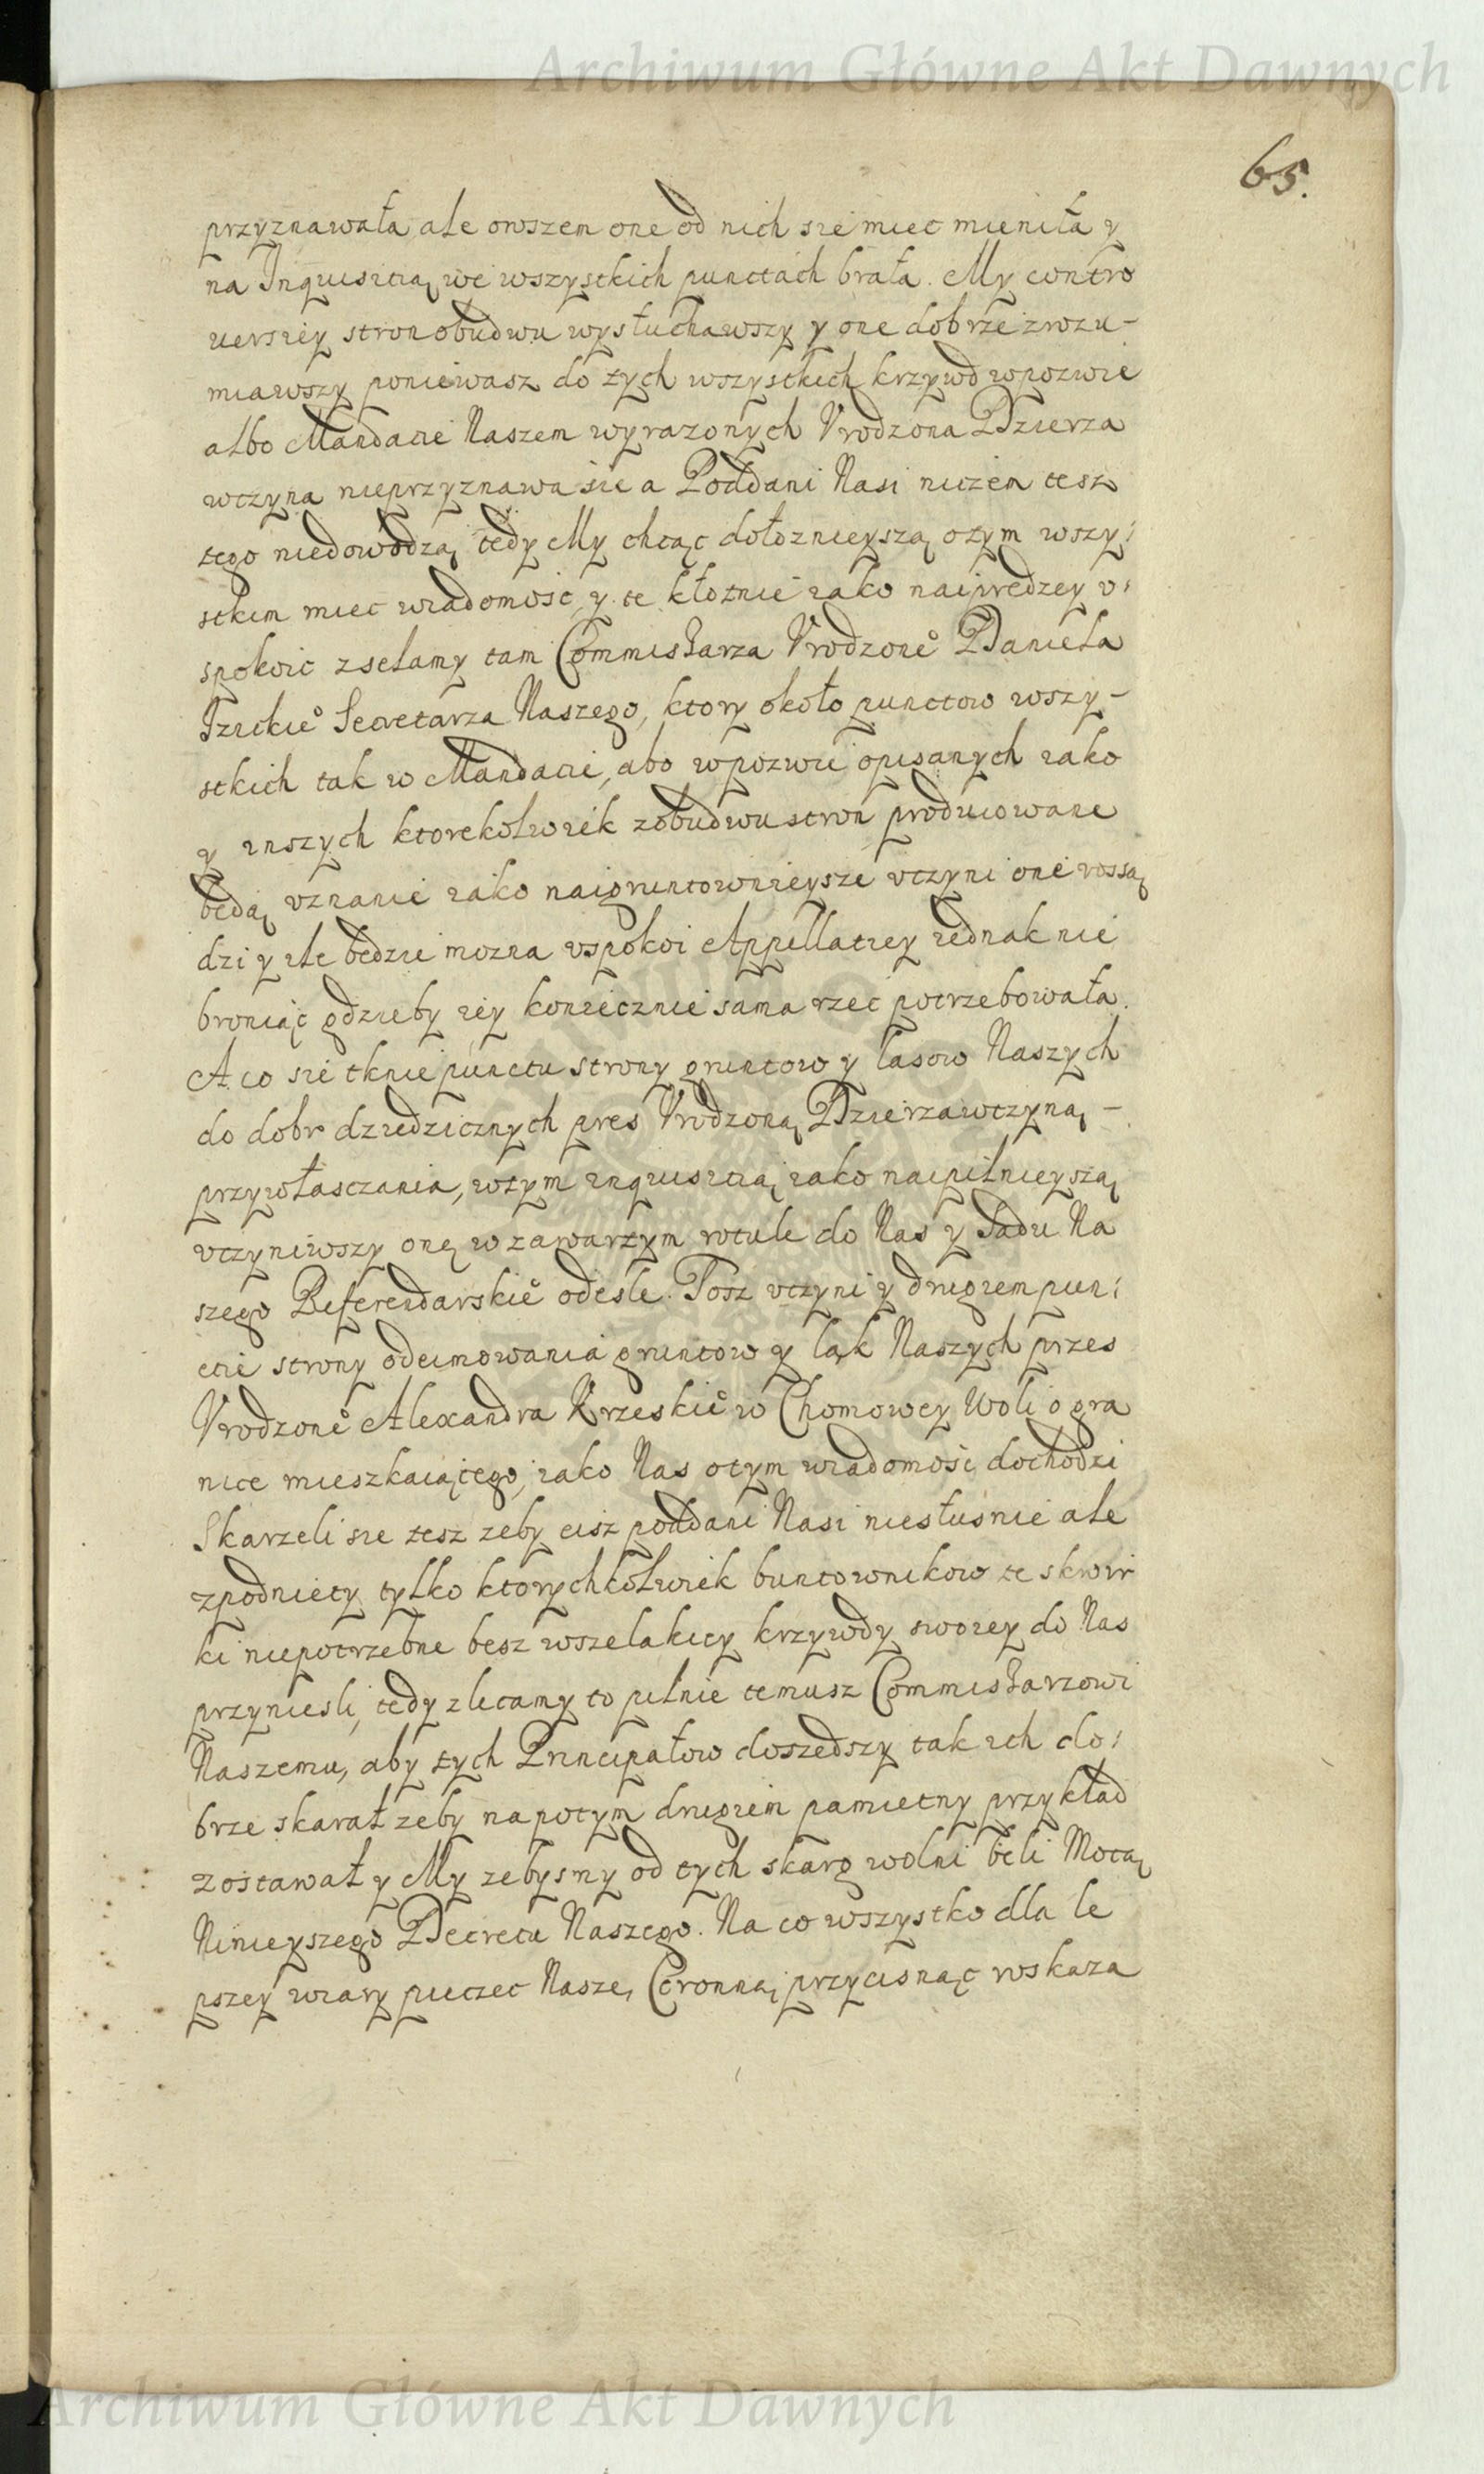 Archiwum Główne Akt Dawnych
65.
przyznawała ale owszem one od nich sie miec mieniła y
na Inquisitią we wszystkich punctach brała. My contro
uersiey stron obudwu wysłuchawszy y one dobrze zrozu-
miawszy poniewasz do tych wszystkich krzywd wpozwie
albo Mandacie Naszem wyrazonych Vrodzona Dzierza
wczyna nieprzyznawa sie a Poddani Nasi niczem tesz
tego niedowodzą tedy My chcąc dołoznieyszą otym wszy:
stkim miec wiadomosc y te kłotnie iako naipredzey v:
spokoic zsełamy tam Commissarza Vrodzone° Daniela
Izickie° Secretarza Naszego, ktory około punctow wszy-
stkich tak w Mandacie, abo wpozwie opisanych iako
y inszych ktorekolwiek zobudwu stron produiowane
będą vznanie iako naigruntownieysze vczyni one rossą
dzi y ile będzie mozna vspokoi Appellatiey iednak nie
broniąc gdzieby iey koniecznie sama rzec potrzebowała.
A co sie tknie punctu strony gruntow y lasow Naszych
do dobr dziedzicznych pres Vrodzoną Dzierzawczyną -
przywłasczania, wtym inquisitią iako naipilnieyszą
vczyniwszy onę w zawartym rotule do Nas y Sadu Na
szego Referendarskie° odesle. Tosz vczyni y drugiem pun:
cie strony odeimowania gruntow y łąk Naszych przes
Vrodzone° Alexandra Krzeskie° w Chomowey Woli o gra
nice mieszkaiącego, iako Nas otym wiadomosc dochodzi
Skarzeli sie tesz zeby cisz poddani Nasi niesłusnie ale
zpodniety tylko ktorychkolwiek buntownikow te skwir
ki niepotrzebne besz wszelakiey krzywdy swoiey do Nas
przyniesli, tedy zlecamy to pilnie temusz Commissarzowi
Naszemu, aby tych Principałow doszedszy tak ich do:
brze skarał zeby napotym drugiem pamietny przykład
zostawał y My zebysmy od tych skarg wolni beli Mocą
Ninieyszego Decretu Naszego. Na co wszystko dla le
pszey wiary pieczec Naszę Coronną przycisnąc roskaza
Archiwum Główne Akt Dawnych